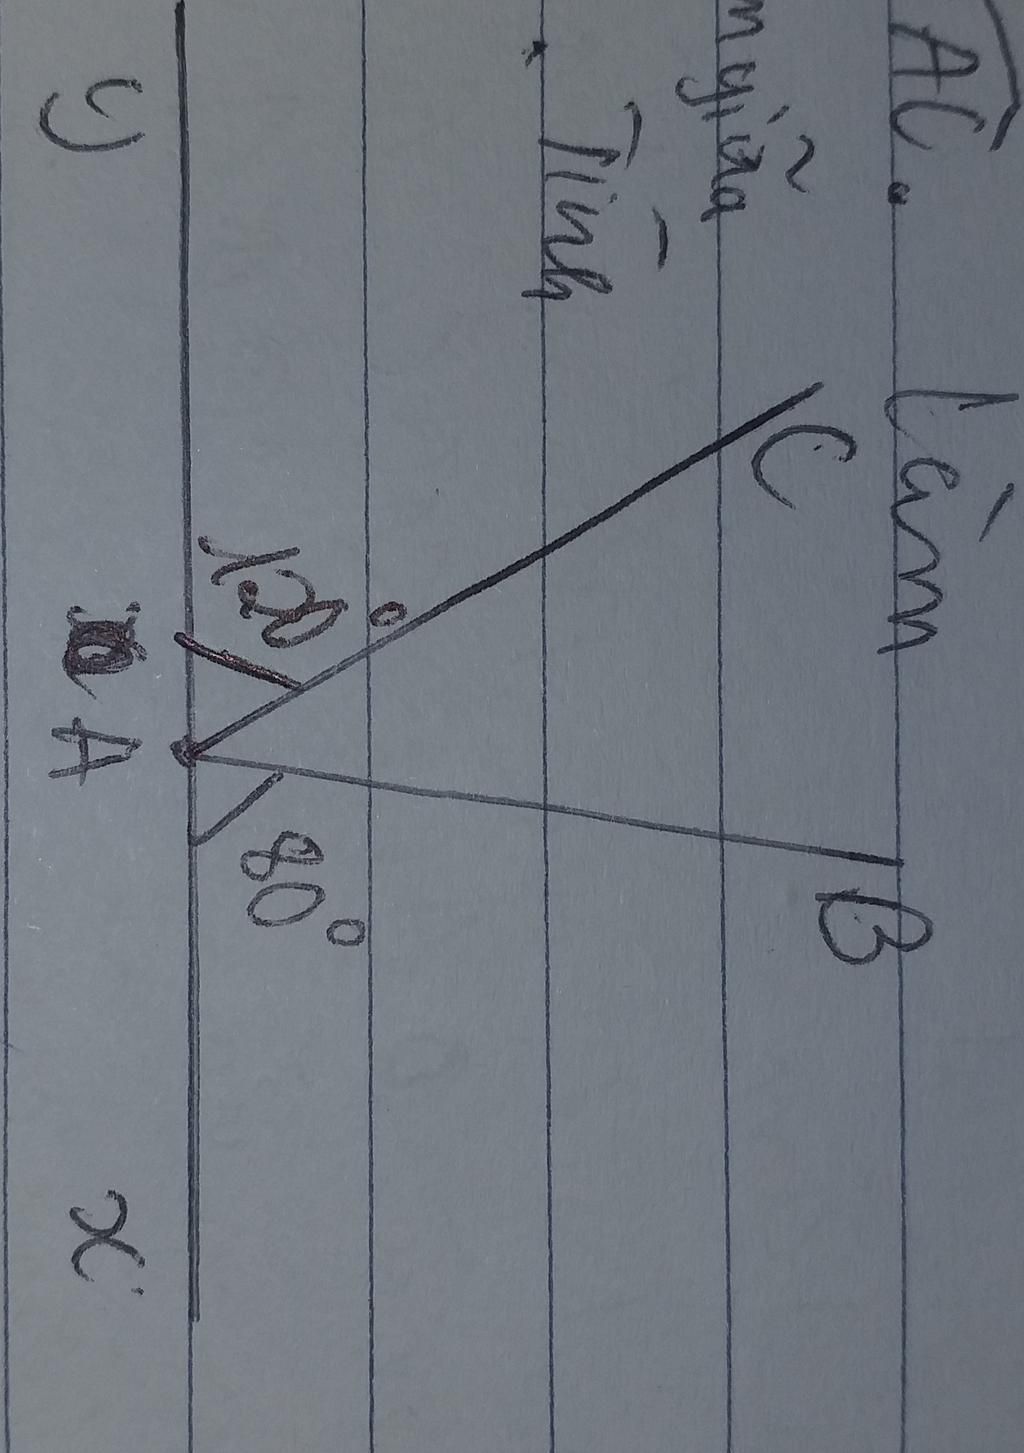 AC. Làm
giữa
- Tính
C
B
120°
80°
y
A
x